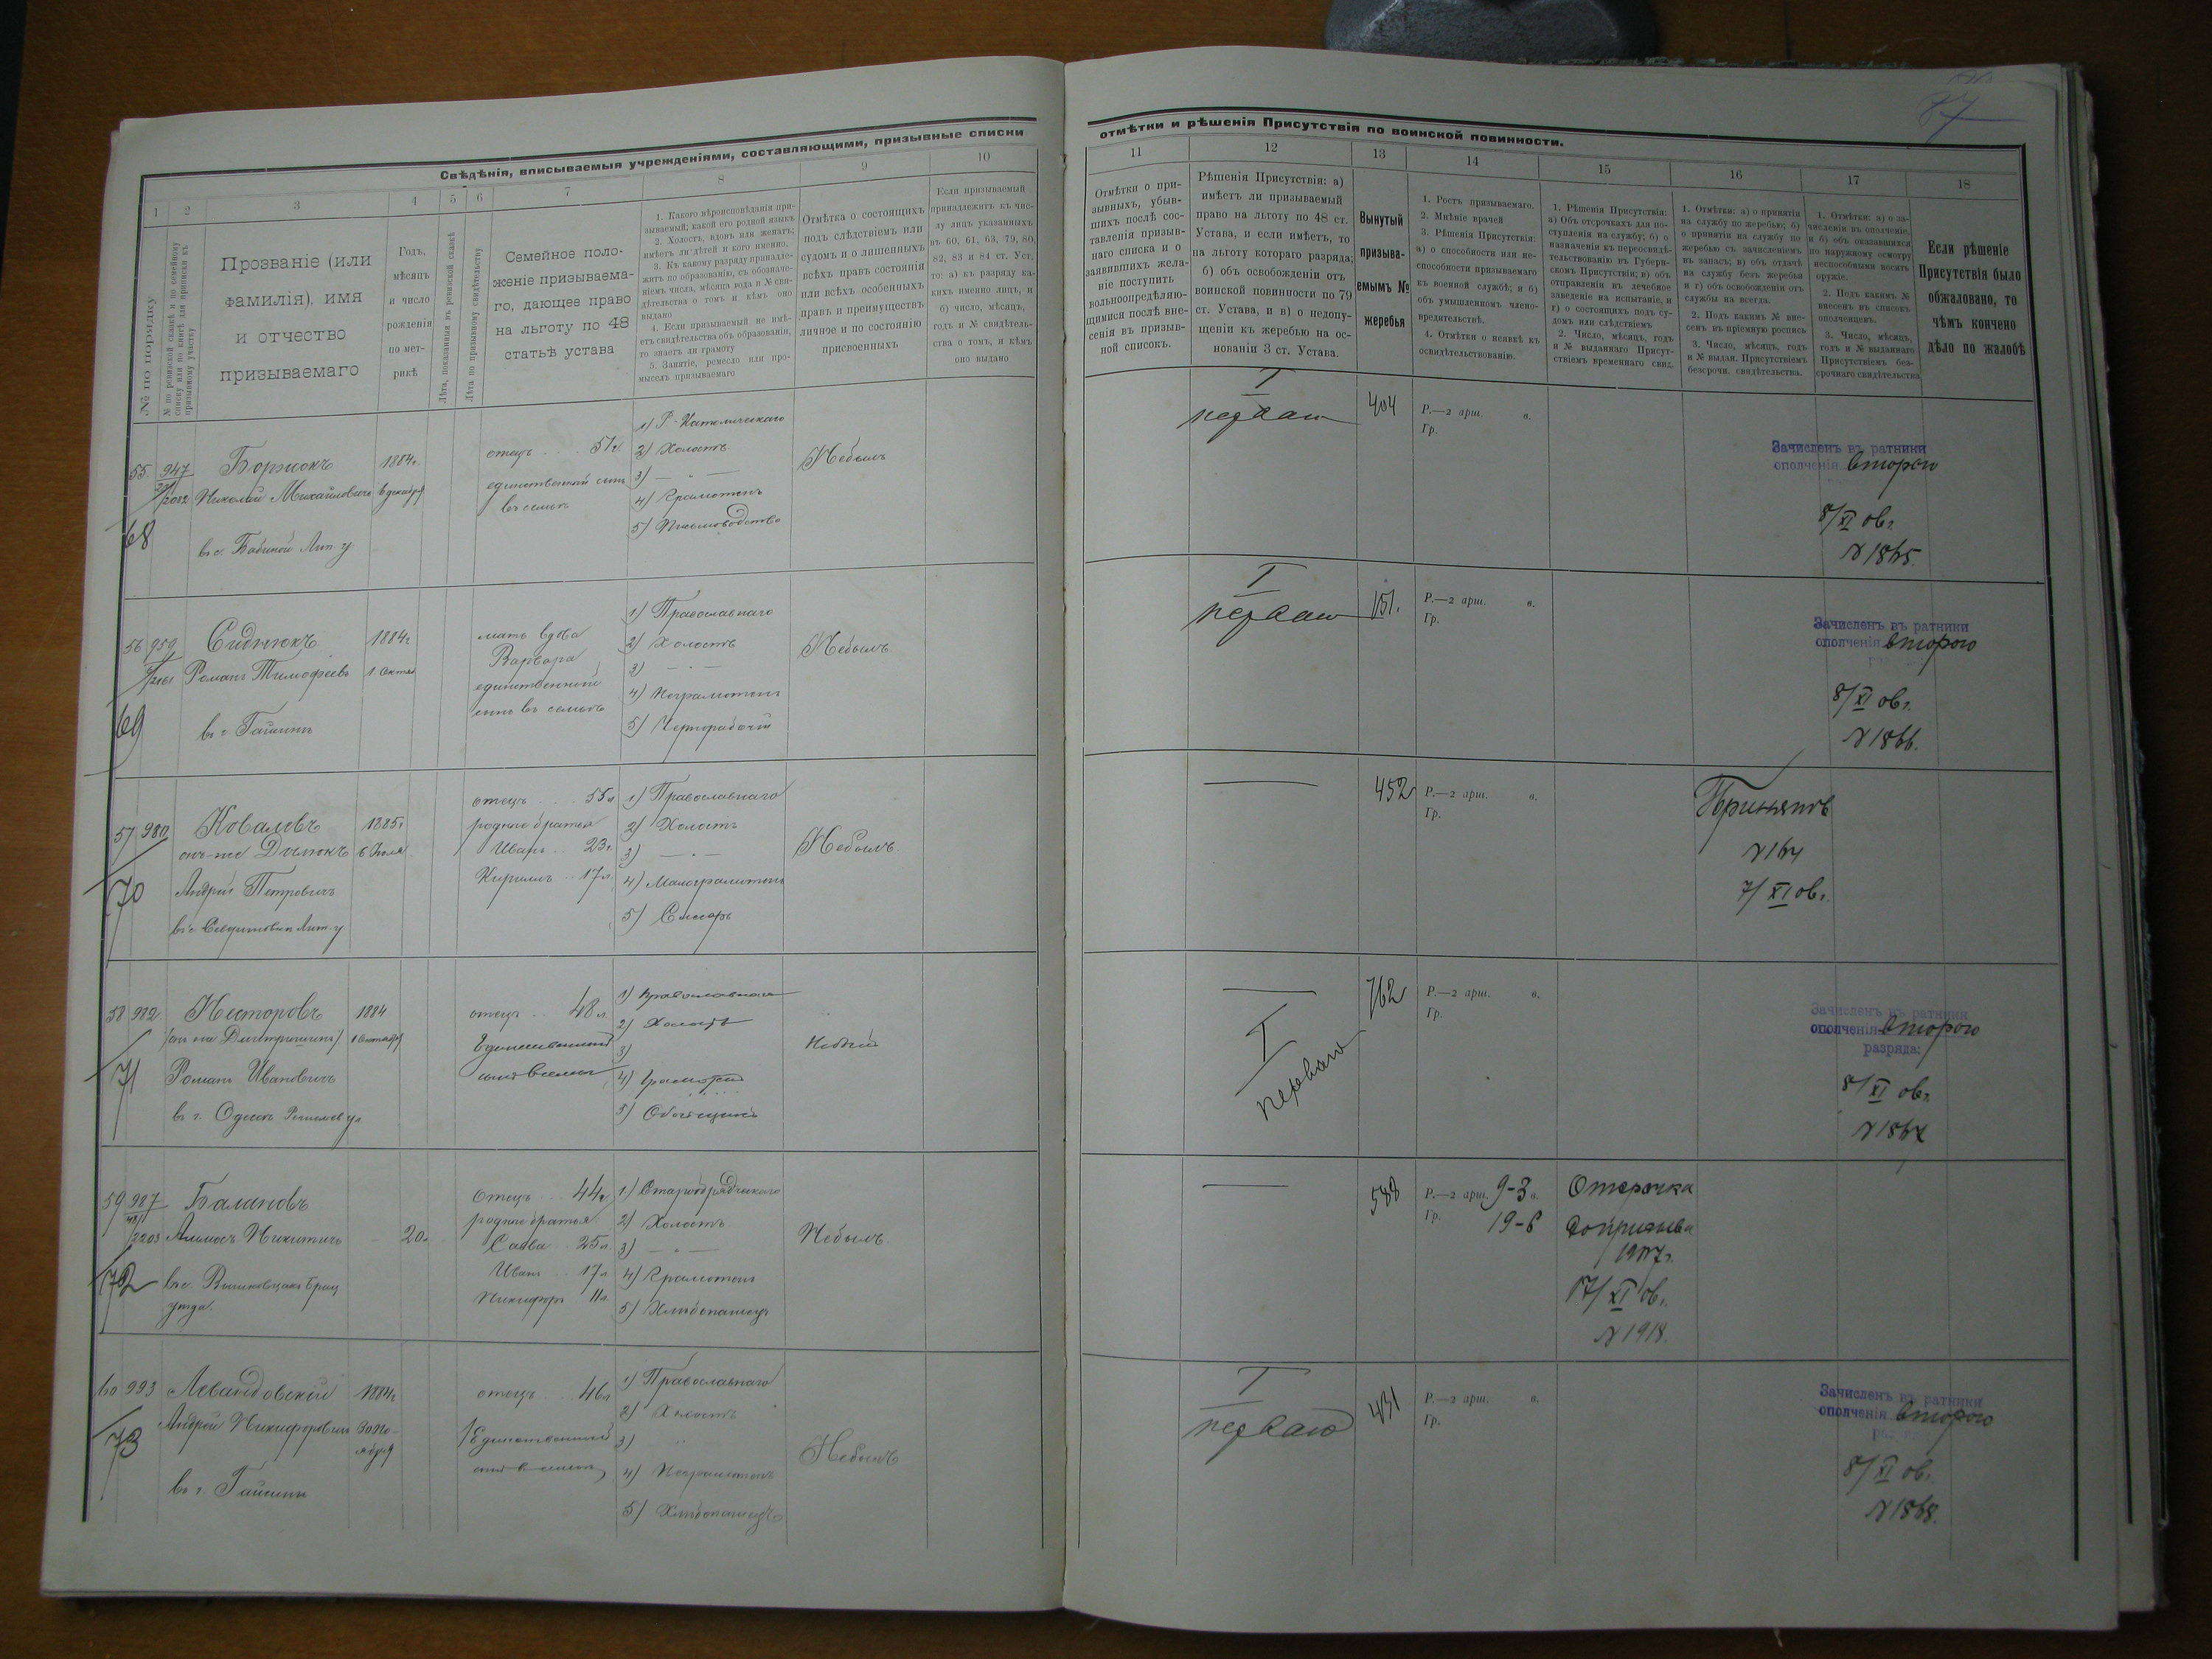 Свѣдѣнія, вписываемыя учрежденіями, составляющими, призывные списки
1 2 3 4 5 6 7 8 9 10
№ по порядку
№ по ревизской сказкѣ и по семейному
списку или по книгѣ для приписки къ
призывному участку
Прозваніе (или
фамилія), имя
и отчество
призываемаго
Годъ,
мѣсяцъ
и число
рожденія
по мет-
рикѣ
Лѣта, показанныя въ ревизской сказкѣ
Лѣта по призывному свидѣтельству
Семейное поло-
женіе призываема-
го, дающее право
на льготу по 48
статьѣ устава
1. Какого вѣроисповѣданія при-
зываемый; какой его родной языкъ
2. Холостъ, вдовъ или женатъ;
имѣетъ ли дѣтей и кого именно.
3. Къ какому разряду принадле-
житъ по образованію, съ обозначе-
ніемъ числа, мѣсяца, года и № сви-
дѣтельства о томъ и кѣмъ оно
выдано
4. Если призываемый не имѣ-
етъ свидѣтельства объ образованіи,
то знаетъ ли грамоту
5. Занятіе, ремесло или про-
мыселъ призываемаго
Отмѣтка о состоящихъ
подъ слѣдствіемъ или
судомъ и о лишенныхъ
всѣхъ правъ состоянія
или всѣхъ особенныхъ
правъ и преимуществъ
личное и по состоянію
присвоенныхъ
Если призываемый
принадлежитъ къ чис-
лу лицъ, указанныхъ
въ 60, 61, 63, 79, 80,
82, 83 и 84 ст. Уст.
то: а) къ разряду ка-
кихъ именно лицъ, и
б) число, мѣсяцъ,
годъ и № свидѣтель-
ства о томъ, и кѣмъ
оно выдано
55. 947
2082
68
Борнокъ
Николай Михайловичъ
въ с. Бабиной Лип. у.
1884г.
6 декабря
отецъ 51г.
единственный сынъ
въ семьѣ
1) Р-Католическаго
2) Холостъ
3) — " —
4) Грамотенъ
5) Письмоводство
Небылъ
56 959
2161
69
Сиднюкъ
Романъ Тимофеевъ
въ г. Гайсинѣ
1884г.
мать вдова
Варвара
единственный
сынъ въ семьѣ
1) Православнаго
2) Холостъ
3) — " —
4) Неграмотенъ
5) Чернорабочій
Небылъ
57 980
70
Ковалевъ
онъ-же Дылюкъ
Андрей Петровичъ
1885г.
6 Іюля
отецъ 55л.
родные братья
Иванъ 23г.
Кириллъ 17л.
1) Православнаго
2) Холостъ
3) — " —
4) Малограмотенъ
5) Слесарь
Небылъ
58 982
71
Несторовъ
Романъ Ивановичъ
1884
отецъ 48л.
Единственный
1) Православнаго
2) Холостъ
3)
4) Грамотенъ
5)
Небылъ
59 987
2203
72
Балановъ
20л.
отецъ 44г.
родные братья
Савва 25л.
Иванъ 17л.
Никифоръ 11л.
1) Старообрядческаго
2) Холостъ
3) — " —
4) Грамотенъ
5) Хлѣбопашецъ
Небылъ
60 993
73
Левандовскій
Андрей Никифоровичъ
въ г. Гайсинѣ
1884г.
30 Но-
ября
отецъ 46л.
Единственный
сынъ въ семьѣ
1) Православнаго
2) Холостъ
3) "
4) Неграмотенъ
5) Хлѣбопашецъ
Небылъ
87
отмѣтки и рѣшенія Присутствія по воинской повинности.
11 12 13 14 15 16 17 18
Отмѣтки о при-
зывныхъ, убыв-
шихъ послѣ сос-
тавленія призыв-
наго списка и о
заявившихъ жела-
ніе поступить
вольноопредѣляю-
щимися послѣ вне-
сенія въ призыв-
ной списокъ.
Рѣшенія Присутствія: а)
имѣетъ ли призываемый
право на льготу по 48 ст.
Устава, и если имѣетъ, то
на льготу котораго разряда;
б) объ освобожденіи отъ
воинской повинности по 79
ст. Устава, и в) о недопу-
щеніи къ жеребью на ос-
нованіи 3 ст. Устава.
Вынутый
призыва-
емымъ №
жеребья
1. Ростъ призываемаго.
2. Мнѣніе врачей
3. Рѣшенія Присутствія:
а) о способности или не-
способности призываемаго
къ военной службѣ; и б)
объ умышленномъ члено-
вредительствѣ.
4. Отмѣтки о неявкѣ къ
освидѣтельствованію.
1. Рѣшенія Присутствія:
а) Объ отсрочкахъ для по-
ступленія на службу; б) о
назначеніи къ переосвидѣ-
тельствованію въ Губерн-
скомъ Присутствіи; в) объ
отправленіи въ лечебное
заведеніе на испытаніе, и
г) о состоящихъ подъ су-
домъ или слѣдствіемъ
2. Число, мѣсяцъ, годъ
и № выданнаго Присут-
ствіемъ временнаго свид.
1. Отмѣтки: а) о принятіи
на службу по жеребью; б)
о принятіи на службу по
жеребью съ зачисленіемъ
въ запасъ; в) объ отдачѣ
на службу безъ жеребья
и г) объ освобожденіи отъ
службы на всегда.
2. Подъ какимъ № вне-
сенъ въ пріемную роспись
3. Число, мѣсяцъ, годъ
и № выдан. Присутствіемъ
безсрочн. свидѣтельства.
1. Отмѣтки: а) о за-
численіи въ ополченіе,
и б) объ оказавшихся
по наружному осмотру
неспособными носить
оружіе.
2. Подъ какимъ №
внесенъ въ списокъ
ополченцевъ.
3. Число, мѣсяцъ,
годъ и № выданнаго
Присутствіемъ без-
срочнаго свидѣтельства
Если рѣшеніе
Присутствія было
обжаловано, то
чѣмъ кончено
дѣло по жалобѣ
I
перваго
404
Р.—2 арш. в.
Гр.
Зачисленъ въ ратники
ополченія второго
8/XI 06г.
№ 1865.
I
перваго
151.
Р.—2 арш. в.
Гр.
Зачисленъ въ ратники
ополченія второго
8/XI 06г.
№ 1866.
452
Р.—2 арш. в.
Гр.
Принятъ
№ 164
7/XI 06г.
I
перваго
762
Р.—2 арш. в.
Гр.
Зачисленъ въ ратники
ополченія второго
разряда;
8/XI 06г.
№ 1867
588
Р.—2 арш. 9-3 в.
Гр. 19-6
Отсрочка
до призыва
1907г.
17/XI 06г.
№ 1918.
I
перваго
431
Р.—2 арш. в.
Гр.
Зачисленъ въ ратники
ополченія второго
8/XI 06г.
№ 1868.